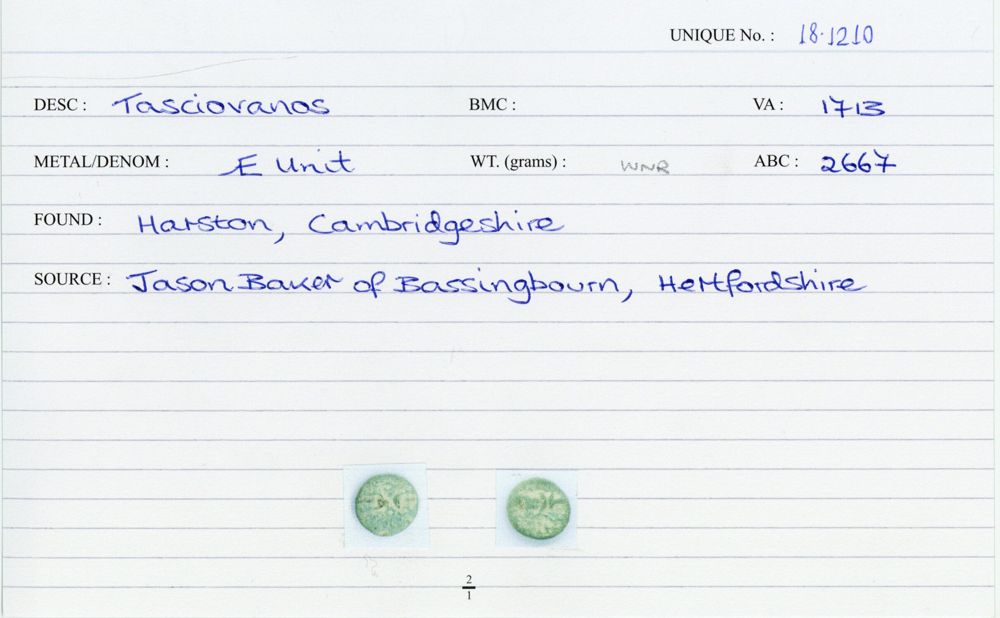 UNIQUE No. : 18.1210
DESC : Tasciovanos BMC : VA : 1713
METAL/DENOM : Æ Unit WT. (grams) : WNR ABC : 2667
FOUND : Harston, Cambridgeshire
SOURCE : Jason Baker of Bassingbourn, Hertfordshire
2
1